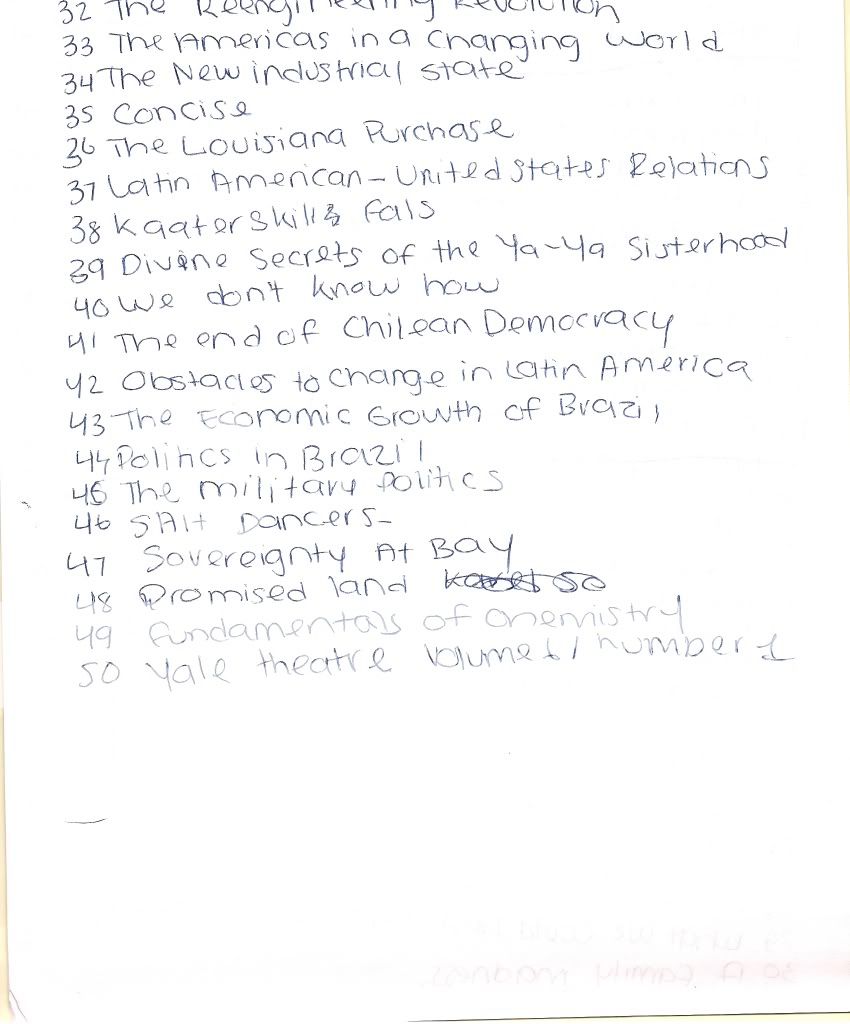 32 The Reengineering Revolution
33 The Americas in a Changing World
34 The New industrial state
35 Concise
36 The Louisiana Purchase
37 Latin American-United states Relations
38 Kaaterskills Fals
39 Divine Secrets of the Ya-Ya Sisterhood
40 We don't know how
41 The end of Chilean Democracy
42 Obstacles to change in Latin America
43 The Economic Growth of Brazil
44 Politics in Brazil
45 The military politics
46 SAlt Dancers-
47 Sovereignty At Bay
48 Promised land
49 fundamentals of chemistry
50 Yale theatre Volume 1/number 1
30 A Family madness